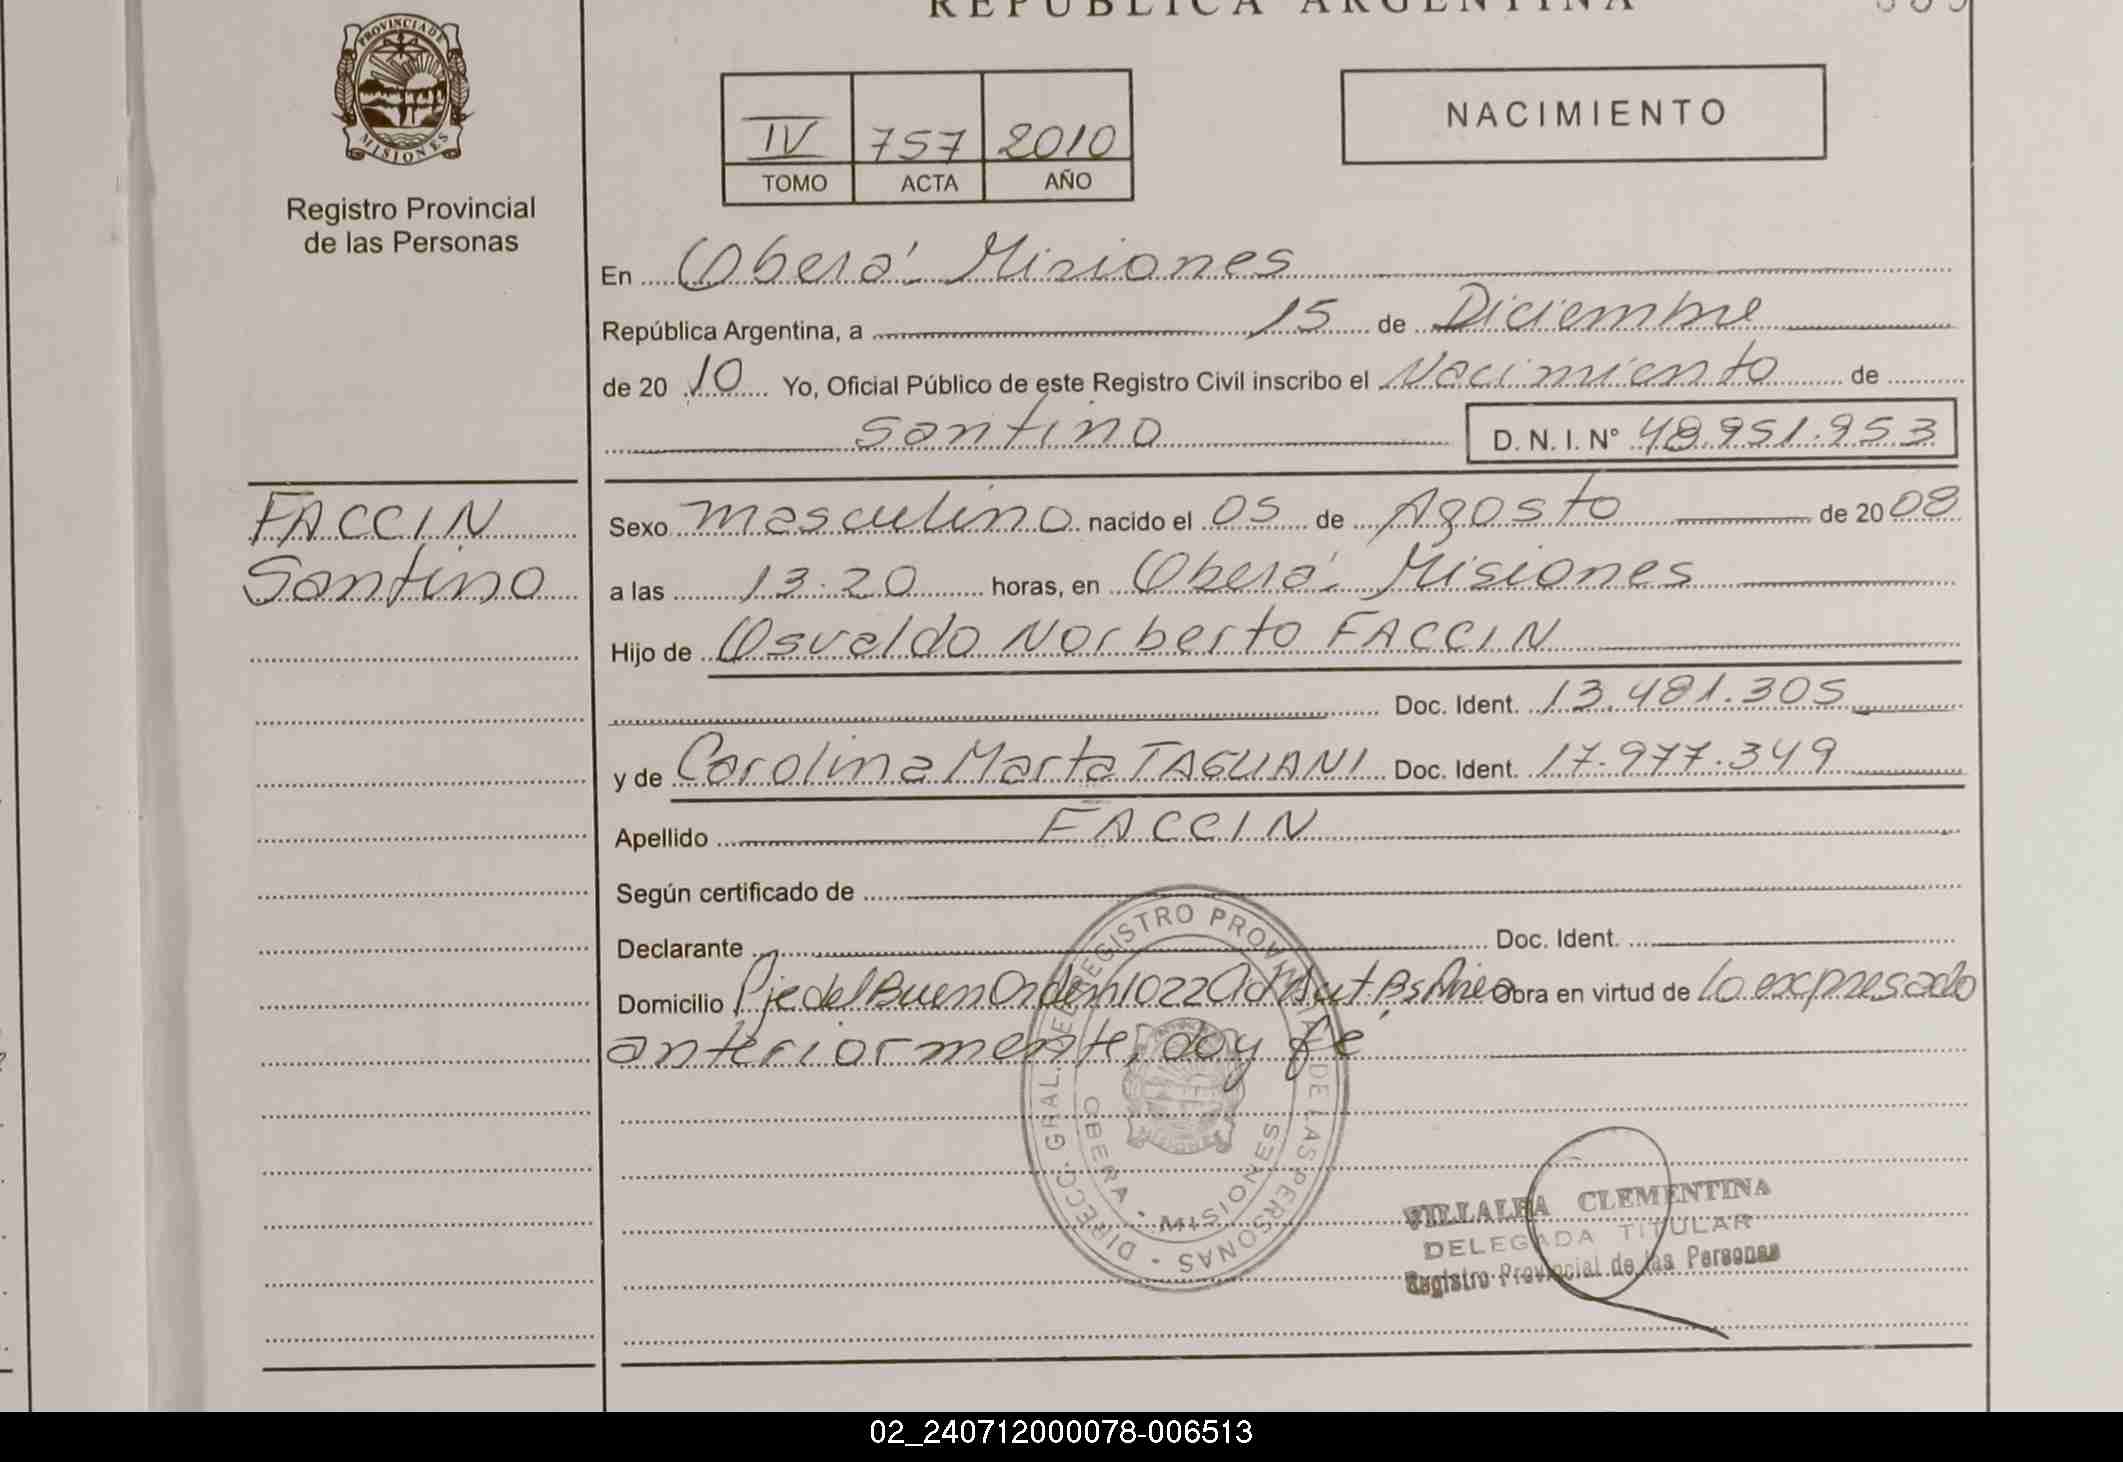 REPUBLICA ARGENTINA
PROVINCIA DE
MISIONES
Registro Provincial
de las Personas
IV 757 2010
TOMO ACTA AÑO
NACIMIENTO
En Oberá Misiones
República Argentina, a 15 de Diciembre
de 20 10 Yo, Oficial Público de este Registro Civil inscribo el Nacimiento de
Santino D. N. I. N° 48.951.953
FACCIN
Santino
Sexo masculino nacido el 05 de Agosto de 20 08
a las 13.20 horas, en Oberá Misiones
Hijo de Osvaldo Norberto FACCIN
Doc. Ident. 13.481.305
y de Carolina Marta TAGLIANI Doc. Ident. 17.977.349
Apellido FACCIN
Según certificado de
Declarante Doc. Ident.
Domicilio Pje del Buen Orden 1022 Obra en virtud de lo expresado
anteriormente, doy fé
DIRECC. GRAL. DEL REGISTRO PROVINCIAL DE LAS PERSONAS
OBERA - MISIONES
VILLALBA CLEMENTINA
DELEGADA TITULAR
Registro Provincial de las Personas
02_240712000078-006513